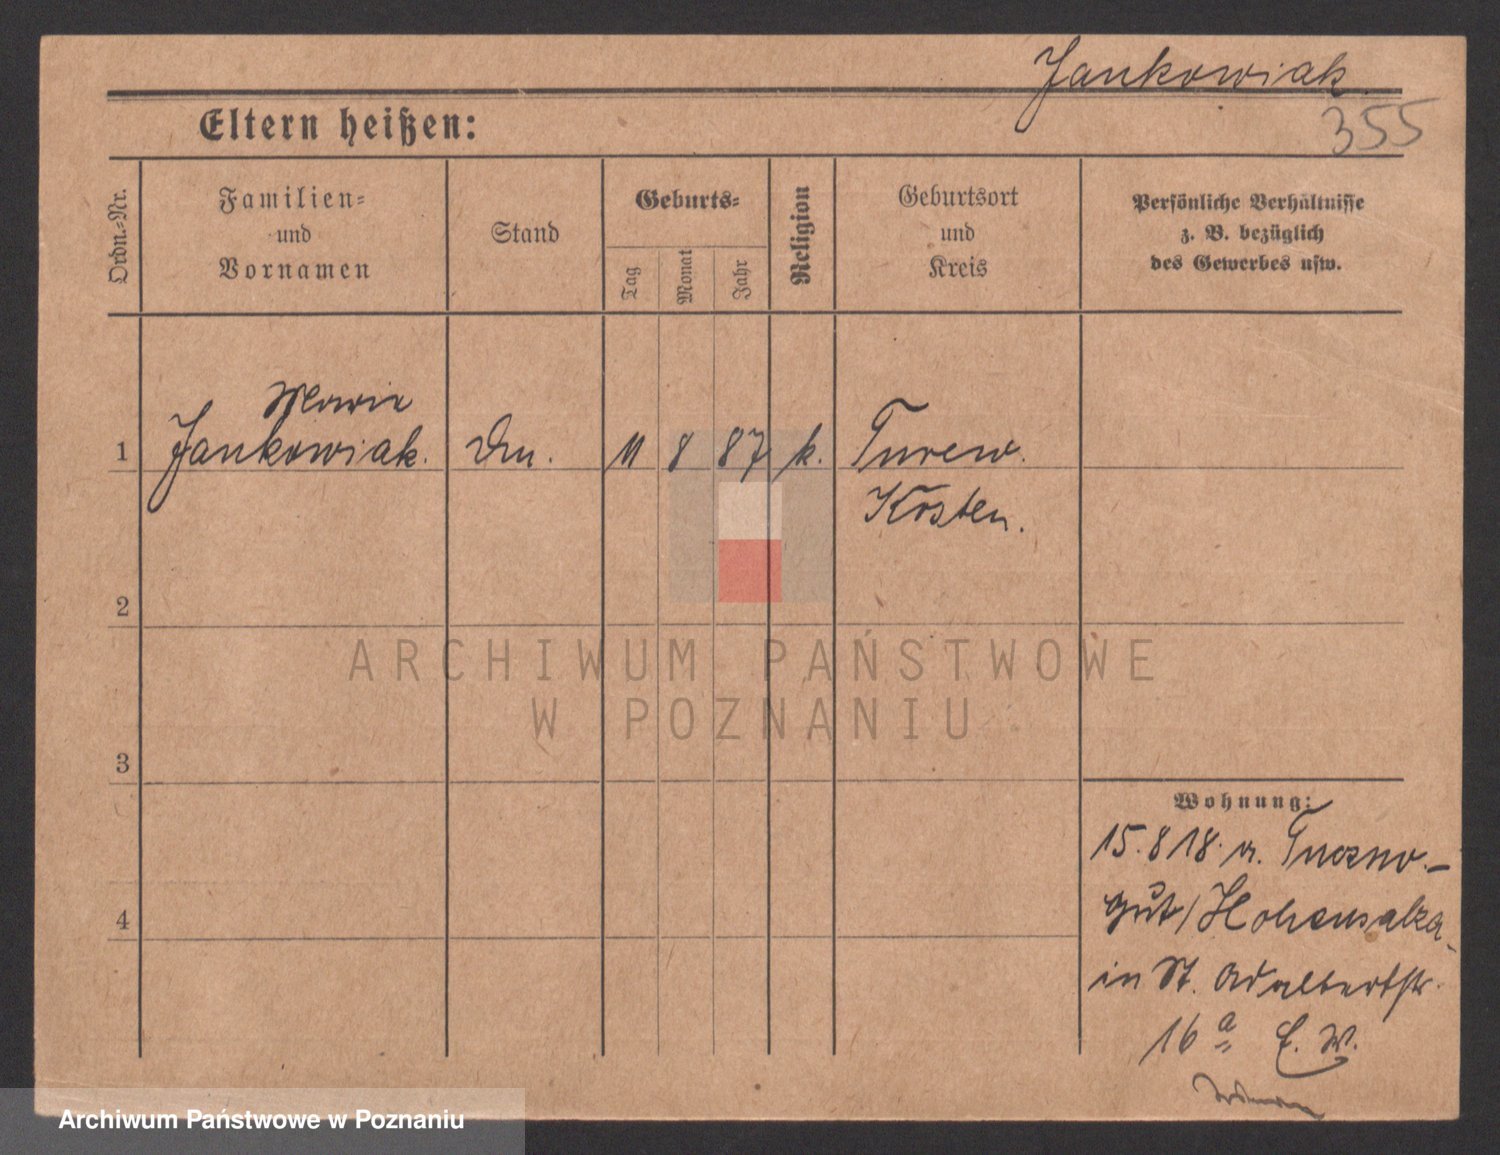 Jankowiak
355
Eltern heißen:
Ordn.-Nr.
Familien-
und
Vornamen
Stand
Geburts-
Tag
Monat
Jahr
Religion
Geburtsort
und
Kreis
Persönliche Verhältnisse
z. B. bezüglich
des Gewerbes usw.
Marie
1 Jankowiak. 11 8 87 k. Turew.
Kosten.
2
ARCHIWUM PAŃSTWOWE
W POZNANIU
3
Wohnung:
15.8 18. a. Tuczno-
gut/Hohensalza
4
in St. Adalbertstr.
16a E. W.
Archiwum Państwowe w Poznaniu